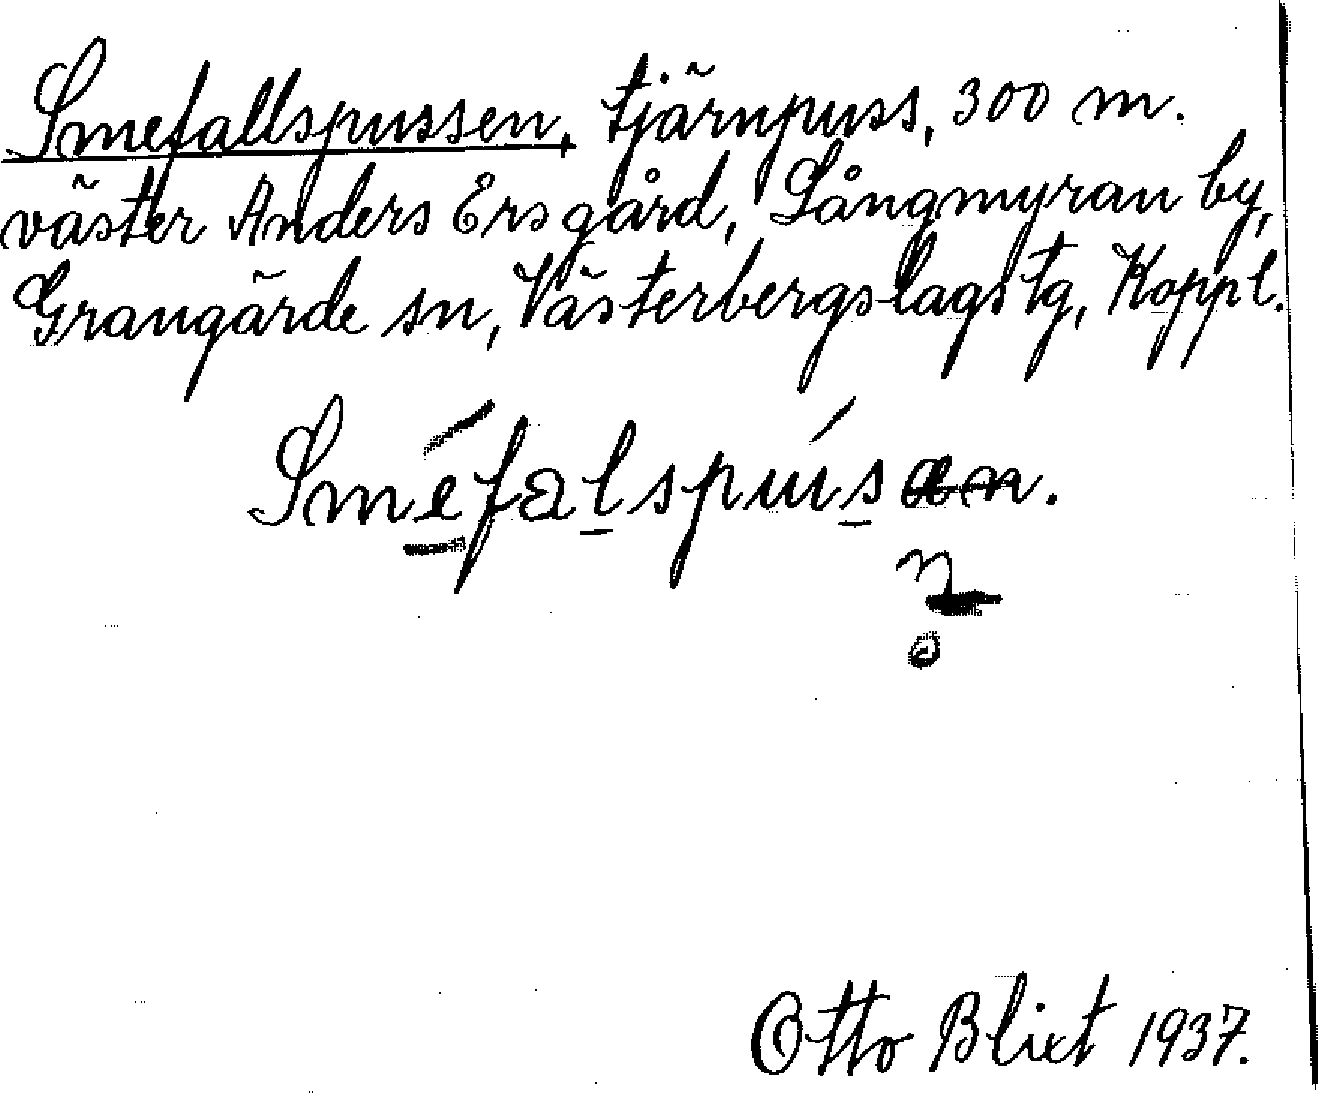 Smefallspussen, tjärnpuss, 300 m.
väster Anders Ers gård, Långmyran by,
Grangärde sn, Västerbergslags tg, Koppl.
Smefalspusæn.
n
o
Otto Blixt 1937.